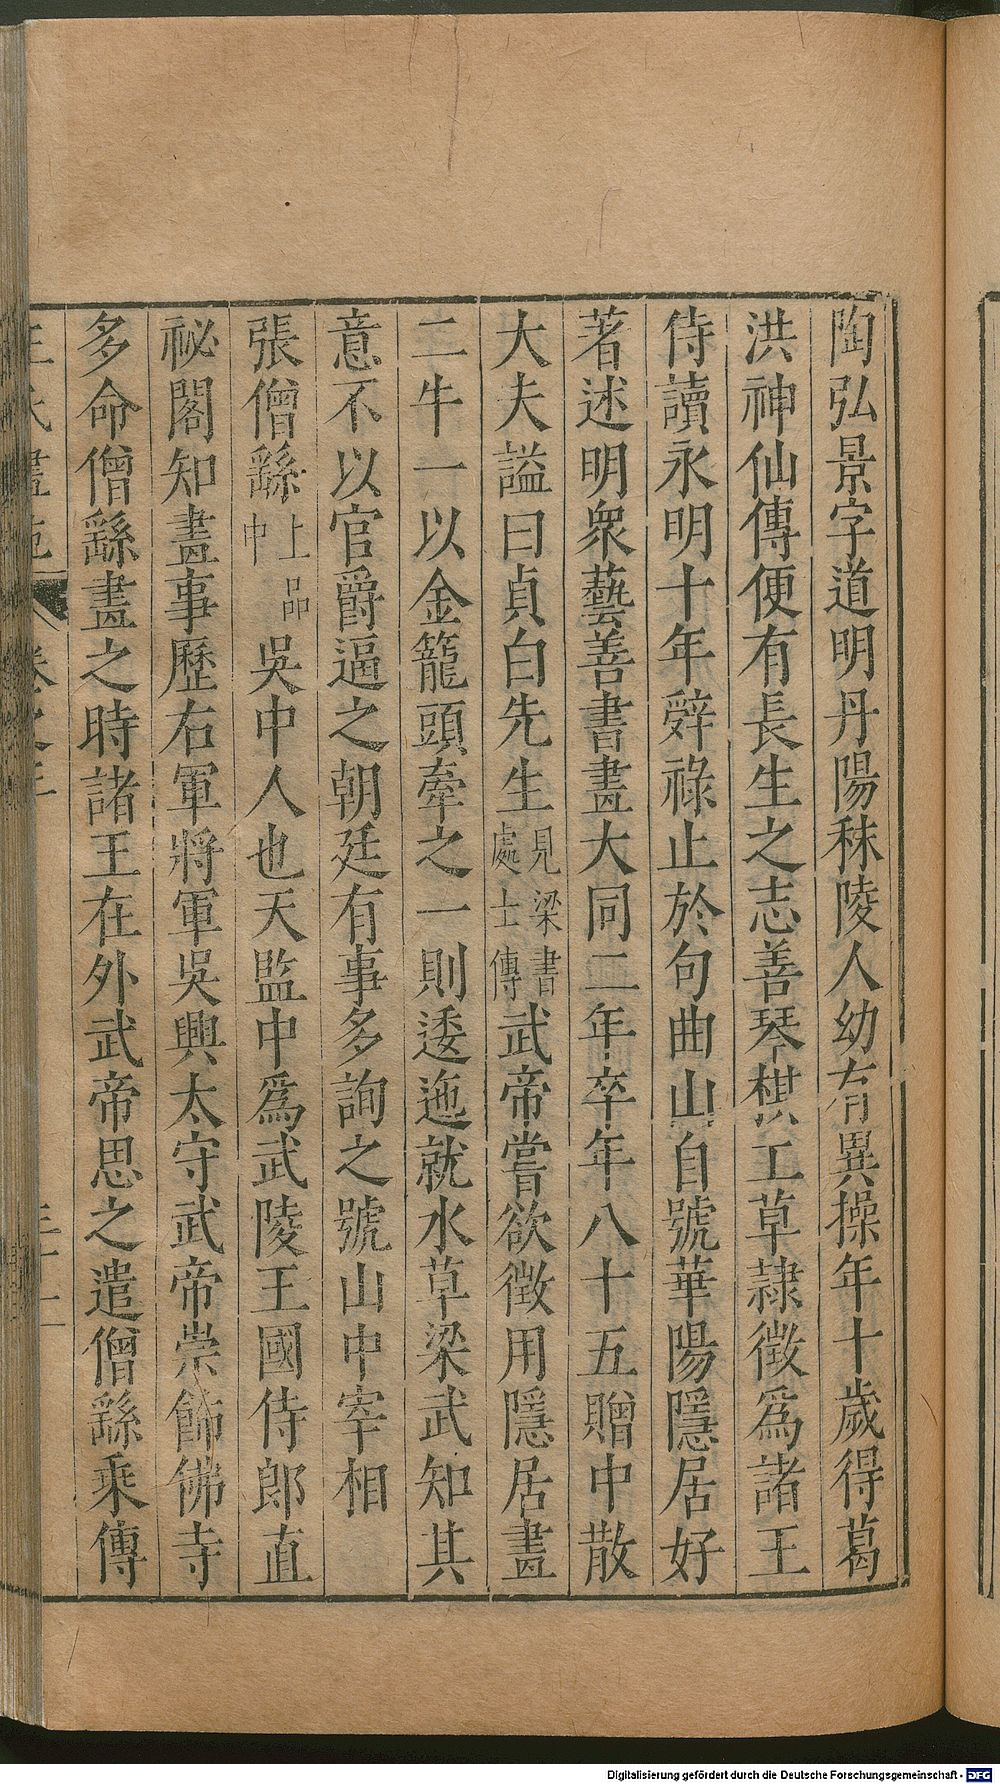 陶弘景字道明丹陽秣陵人幼有異操年十歲得葛
洪神仙傳便有長生之志善琴棋工草隸徵爲諸王
侍讀永明十年辭祿止於句曲山自號華陽隱居好
著述明衆藝善書畫大同二年卒年八十五贈中散
大夫謚曰貞白先生見梁書處士傳武帝嘗欲徵用隱居畫
二牛一以金籠頭牽之一則逶迤就水草梁武知其
意不以官爵逼之朝廷有事多詢之號山中宰相
張僧繇上品中吳中人也天監中爲武陵王國侍郎直
祕閣知畫事歷右軍將軍吳興太守武帝崇飾佛寺
多命僧繇畫之時諸王在外武帝思之遣僧繇乘傳
王氏畫苑 卷之三 三十一
Digitalisierung gefördert durch die Deutsche Forschungsgemeinschaft - DFG